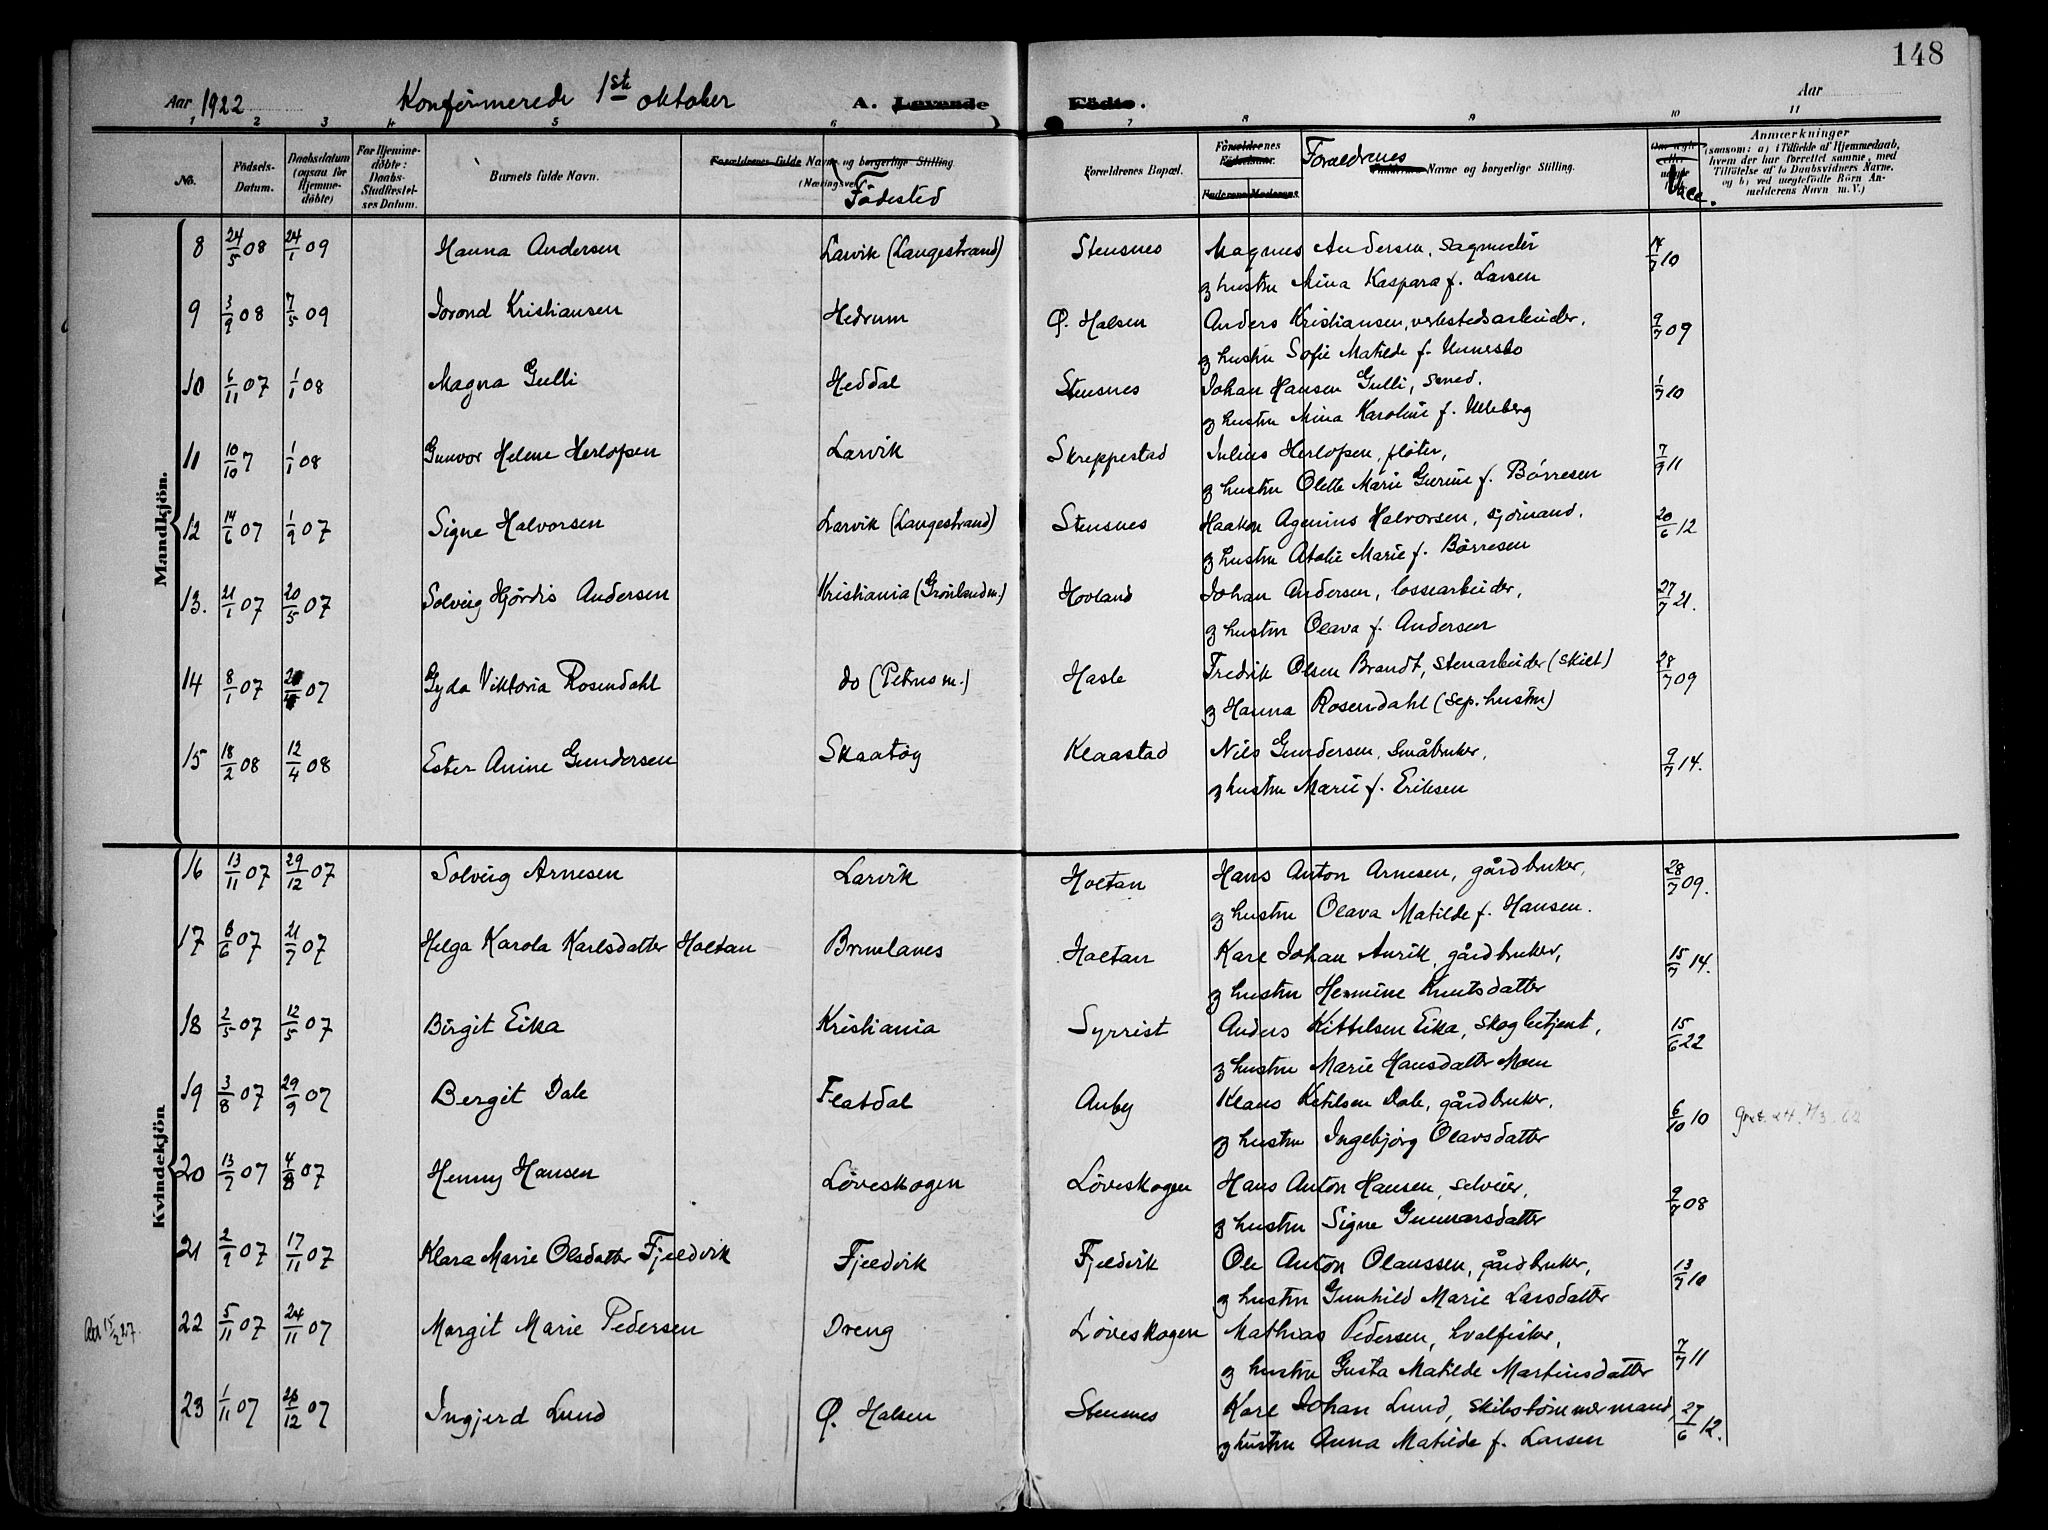 148
Aar 1922 Konfirmerede 1ste oktober A. Levende Födte. Aar
1 2 3 4 5 6 7 8 9 10 11
No. Födsels-Datum. Daabsdatum (ogsaa for Hjemme-döbte) For Hjemme-döbte: Daabs-Stadfæstel-ses Datum. Barnets fulde Navn. Forældrenes fulde Navne og borgerlige Stilling. (Næringsvei) Fødested Forældrenes Bopæl. Forældrenes Faderens Moderens Forældrenes Navne og borgerlige Stilling. Vacc. Anmærkninger (saasom: a) i Tilfælde af Hjemmedaab, hvem der har forrettet samme, med Tilföielse af to Daabsvidners Navne, og b) ved uegtefödte Börn An-melderens Navn m. V.)
Mandkjön.
8 24/5 08 24/1 09 Hanna Andersen Larvik (Langestrand) Stensnes Magnus Andersen, sagmester 14/7 10
og hustru Mina Kaspara f. Larsen
9 3/9 08 7/5 09 Jorond Kristiansen Hedrum Ø. Halsen Anders Kristiansen, verkstedsarbeider, 9/7 09
og hustru Sofie Matilde f.
10 6/11 07 1/1 08 Magna Gulli Heddal Stensnes Johan Hansen Gulli, smed. 1/7 10
og hustru Mina Karoline f. Ulleberg
11 10/10 7 1/1 08 Gunvor Helene Herlofsen Larvik Skreppestad Julius Herlofsen, fløter, 7/9 11
og hustru Olette Marie Gurine f. Børresen
12 14/6 07 1/9 07 Signe Halvorsen Larvik (Langestrand) Stensnes Haakon Agenius Halvorsen, sjømand. 20/6 12
og hustru Atalie Marie f. Børresen
13. 21/1 07 20/5 07 Solveig Hjørdis Andersen Kristiania (Grønland m.) Hovland Johan Andersen, lossearbeider, 27/7 21.
og hustru Olava f. Andersen
14 8/1 07 07 Gyda Viktoria Rosendahl do (Petrus m.) Hasle Fredrik Olsen Brandt, stenarbeider (skilt) 28/7 09
og Hanna Rosendahl (sep. hustru)
15 18/2 08 12/4 08 Ester Anine Gundersen Skaatøy Klaastad Nils Gundersen, småbruker, 9/7 14.
og hustru Marie f. Eriksen
Kvindekjön
16 13/11 07 29/12 07 Solveig Arnesen Larvik Holtan Hans Anton Arnesen, gårdbruker, 28/7 09.
og hustru Olava Matilde f. Hansen.
17 6/6 07 21/7 07 Helga Karola Karlsdatter Holtan Brunlanes Holtan Karl Johan Aurik, gårdbruker, 15/7 14.
og hustru Hermine Knutsdatter
18 2/5 07 12/5 07 Birgit Eika Kristiania Syrrist Anders Kittelsen Eika, skogbetjent, 15/6 22
og hustru Marie Hansdatter Moen
19 3/8 07 29/9 07 Bergit Dale Flatdal Auby Klaus Ketilsen Dale, gårdbruker, 6/10 10
og hustru Ingebjørg Olavsdatter
20 13/7 07 4/8 07 Henny Hansen Løveskogen Løveskogen Hans Anton Hansen, selveier, 9/7 08
og hustru Signe Gunnarsdatter
21 2/9 07 17/11 07 Klara Marie Olsdatter Fjeldvik Fjeldvik Fjeldvik Ole Anton Olaussen, gårdbruker, 13/7 10
og hustru Gunhild Marie Larsdatter
22 5/11 07 24/11 07 Margit Marie Pedersen Dreng Løveskogen Mathias Pedersen, hvalfisker, 7/7 11
og hustru Gusta Matilde Martinsdatter
23 1/11 07 26/12 07 Ingjerd Lund Ø. Halsen Stensnes Karl Johan Lund, skibstømmermand, 27/6 12.
og hustru Anna Matilde f. Larsen